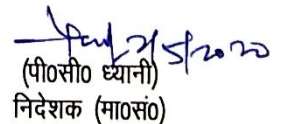 21/5/2020
(पी०सी० ध्यानी)
निदेशक (मा०सं०)